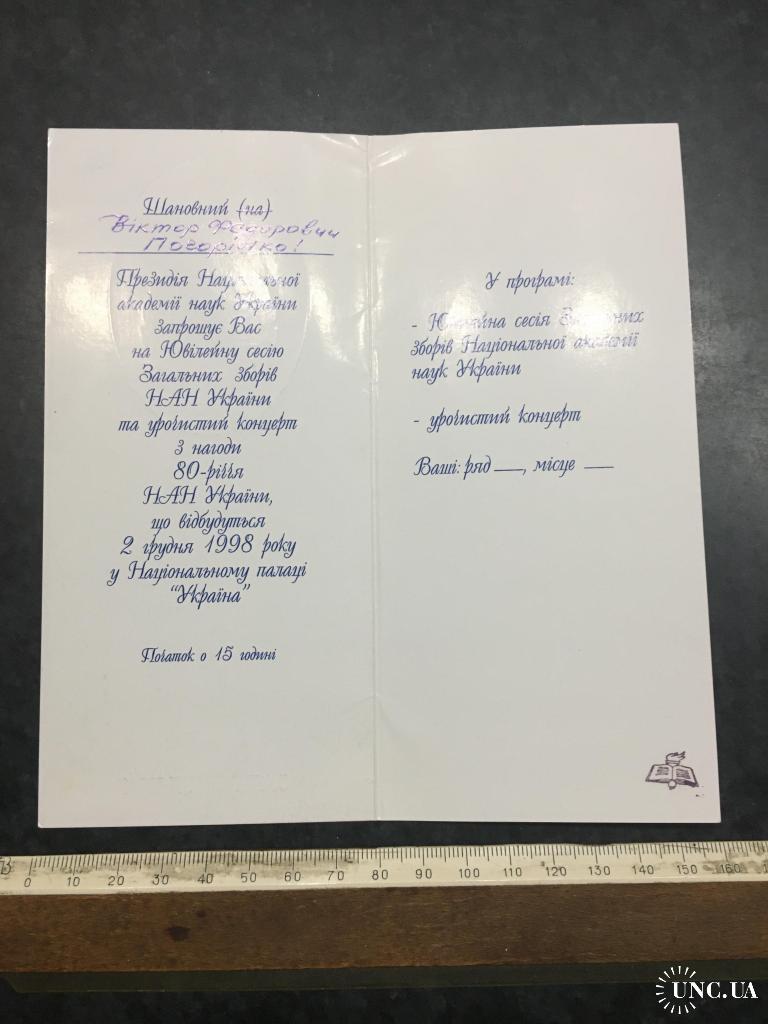 Шановний (на)
Віктор Федорович
Погорілко!
Президія Національної
академії наук України
запрошує Вас
на Ювілейну сесію
Загальних зборів
НАН України
та урочистий концерт
з нагоди
80-річчя
НАН України,
що відбудуться
2 грудня 1998 року
у Національному палаці
"Україна"
Початок о 15 годині
У програмі:
- Ювілейна сесія Загальних
зборів Національної академії
наук України
- урочистий концерт
Ваші: ряд ___, місце ___
0 10 20 30 40 50 60 70 80 90 100 110 120 130 140 150 160
UNC.UA